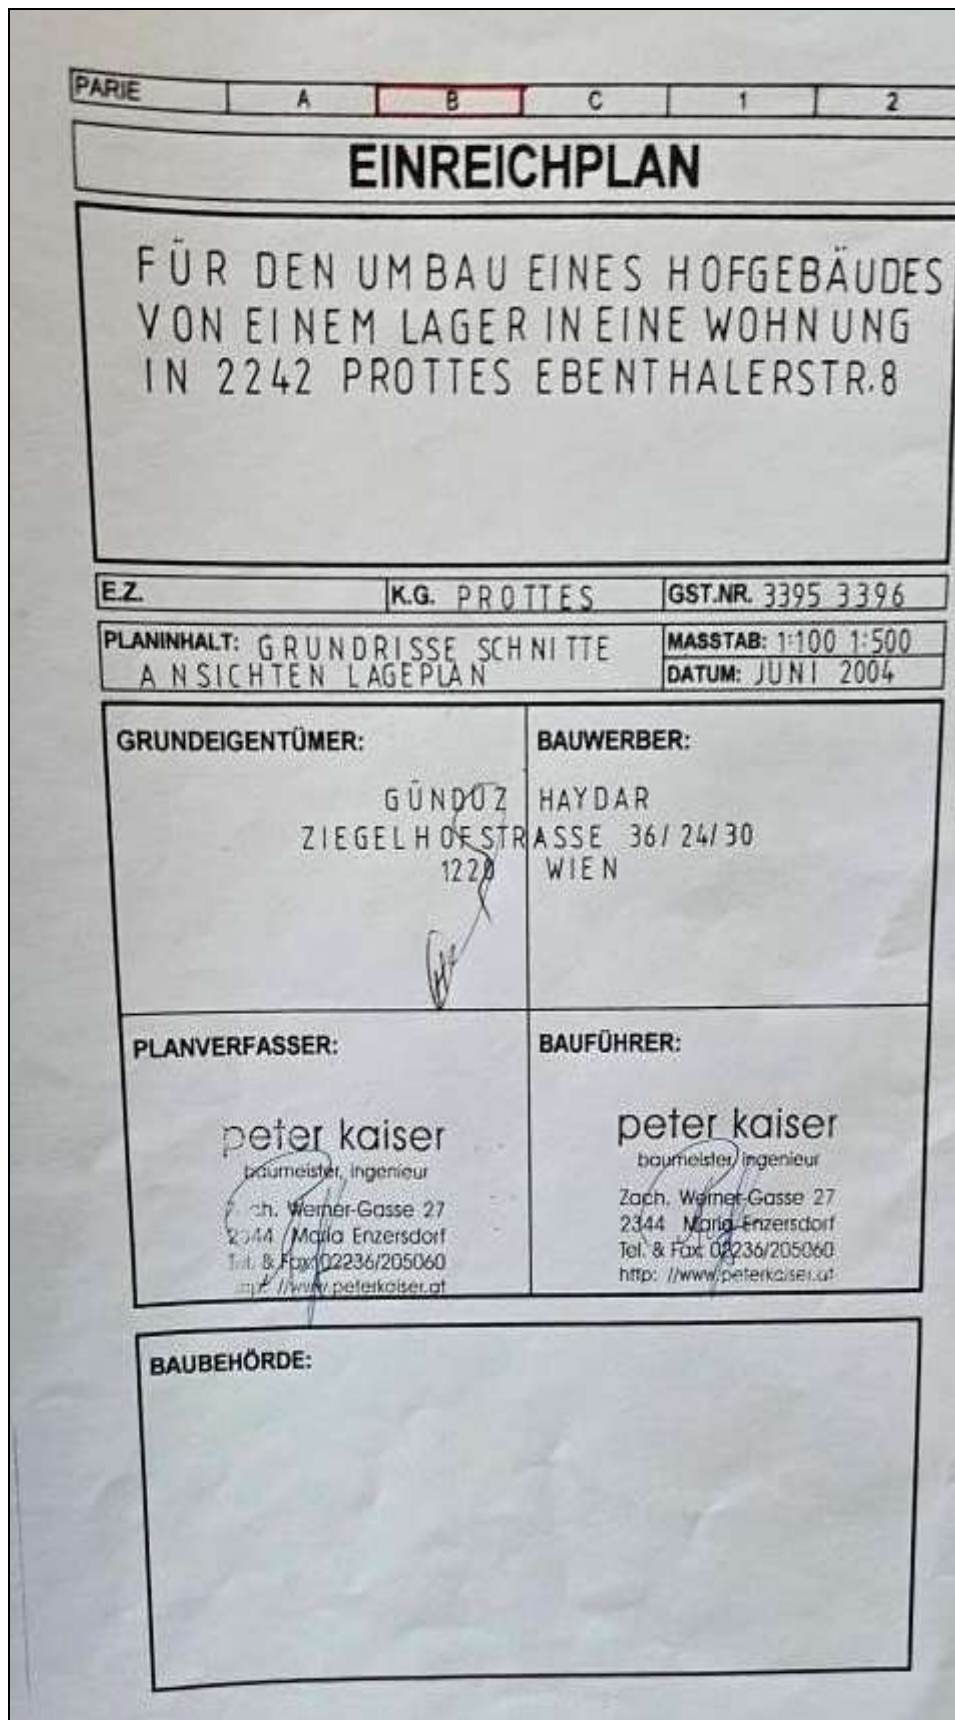 PARIE A B C 1 2
EINREICHPLAN
FÜR DEN UMBAU EINES HOFGEBÄUDES
VON EINEM LAGER IN EINE WOHNUNG
IN 2242 PROTTES EBENTHALERSTR.8
E.Z. K.G. PROTTES GST.NR. 3395 3396
PLANINHALT: GRUNDRISSE SCHNITTE
ANSICHTEN LAGEPLAN
MASSTAB: 1:100 1:500
DATUM: JUNI 2004
GRUNDEIGENTÜMER: BAUWERBER:
GÜNDÜZ HAYDAR
ZIEGELHOFSTRASSE 36/24/30
1220 WIEN
PLANVERFASSER:
peter kaiser
baumeister, ingenieur
Zach. Werner-Gasse 27
2344 Maria Enzersdorf
Tel. & Fax 02236/205060
http: //www.peterkaiser.at
BAUFÜHRER:
peter kaiser
baumeister, ingenieur
Zach. Werner-Gasse 27
2344 Maria Enzersdorf
Tel. & Fax 02236/205060
http: //www.peterkaiser.at
BAUBEHÖRDE: